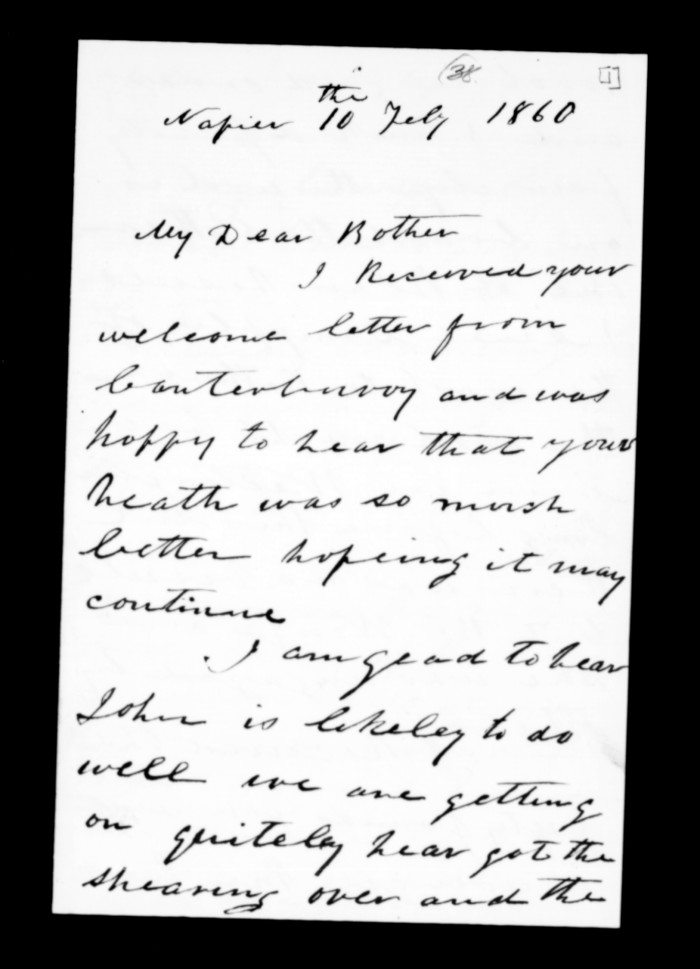 38 [1]
the
Napier 10 Fely 1860
My Dear Bother
I Receeved your
welcome letter from
Canterburoy and was
hoppy to hear that your
heath was so mush
better hopeing it may
continue
I am glad to hear
John is likeley to do
well we are getting
on quiteley hear got the
shearing over and the